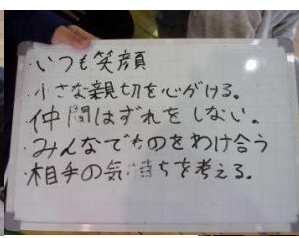 ・いつも笑顔
・小さな親切を心がける。
・仲間はずれをしない。
・みんなでものをわけ合う
・相手の気持ちを考える。